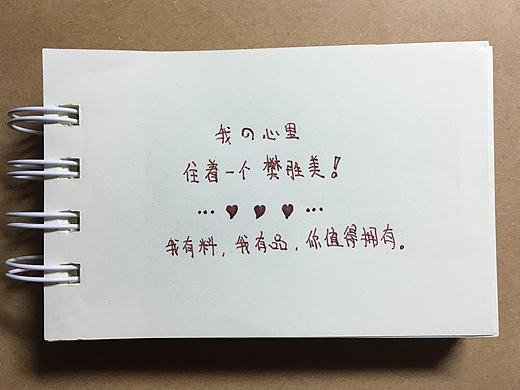 我の心里
住着一个樊胜美！
...♥♥♥...
我有料，我有品，你值得拥有。